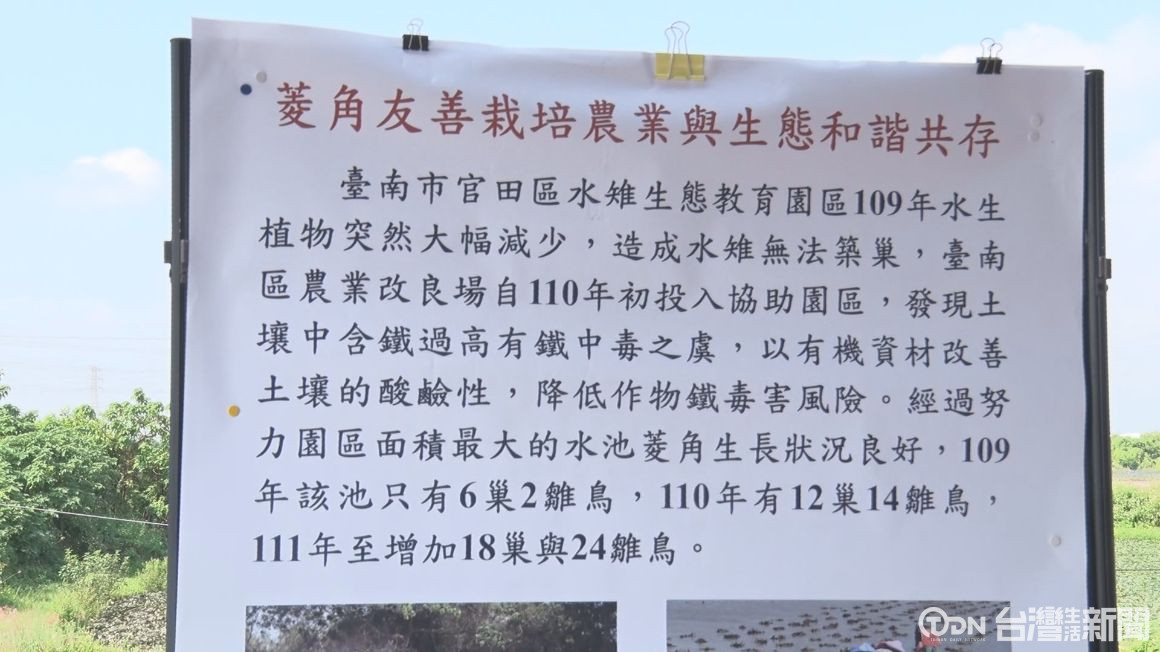 菱角友善栽培農業與生態和諧共存
臺南市官田區水雉生態教育園區109年水生
植物突然大幅減少，造成水雉無法築巢，臺南
區農業改良場自110年初投入協助園區，發現土
壤中含鐵過高有鐵中毒之虞，以有機資材改善
土壤的酸鹼性，降低作物鐵毒害風險。經過努
力園區面積最大的水池菱角生長狀況良好，109
年該池只有6巢2雛鳥，110年有12巢14雛鳥，
111年至增加18巢與24雛鳥。
TDN 台灣生活新聞